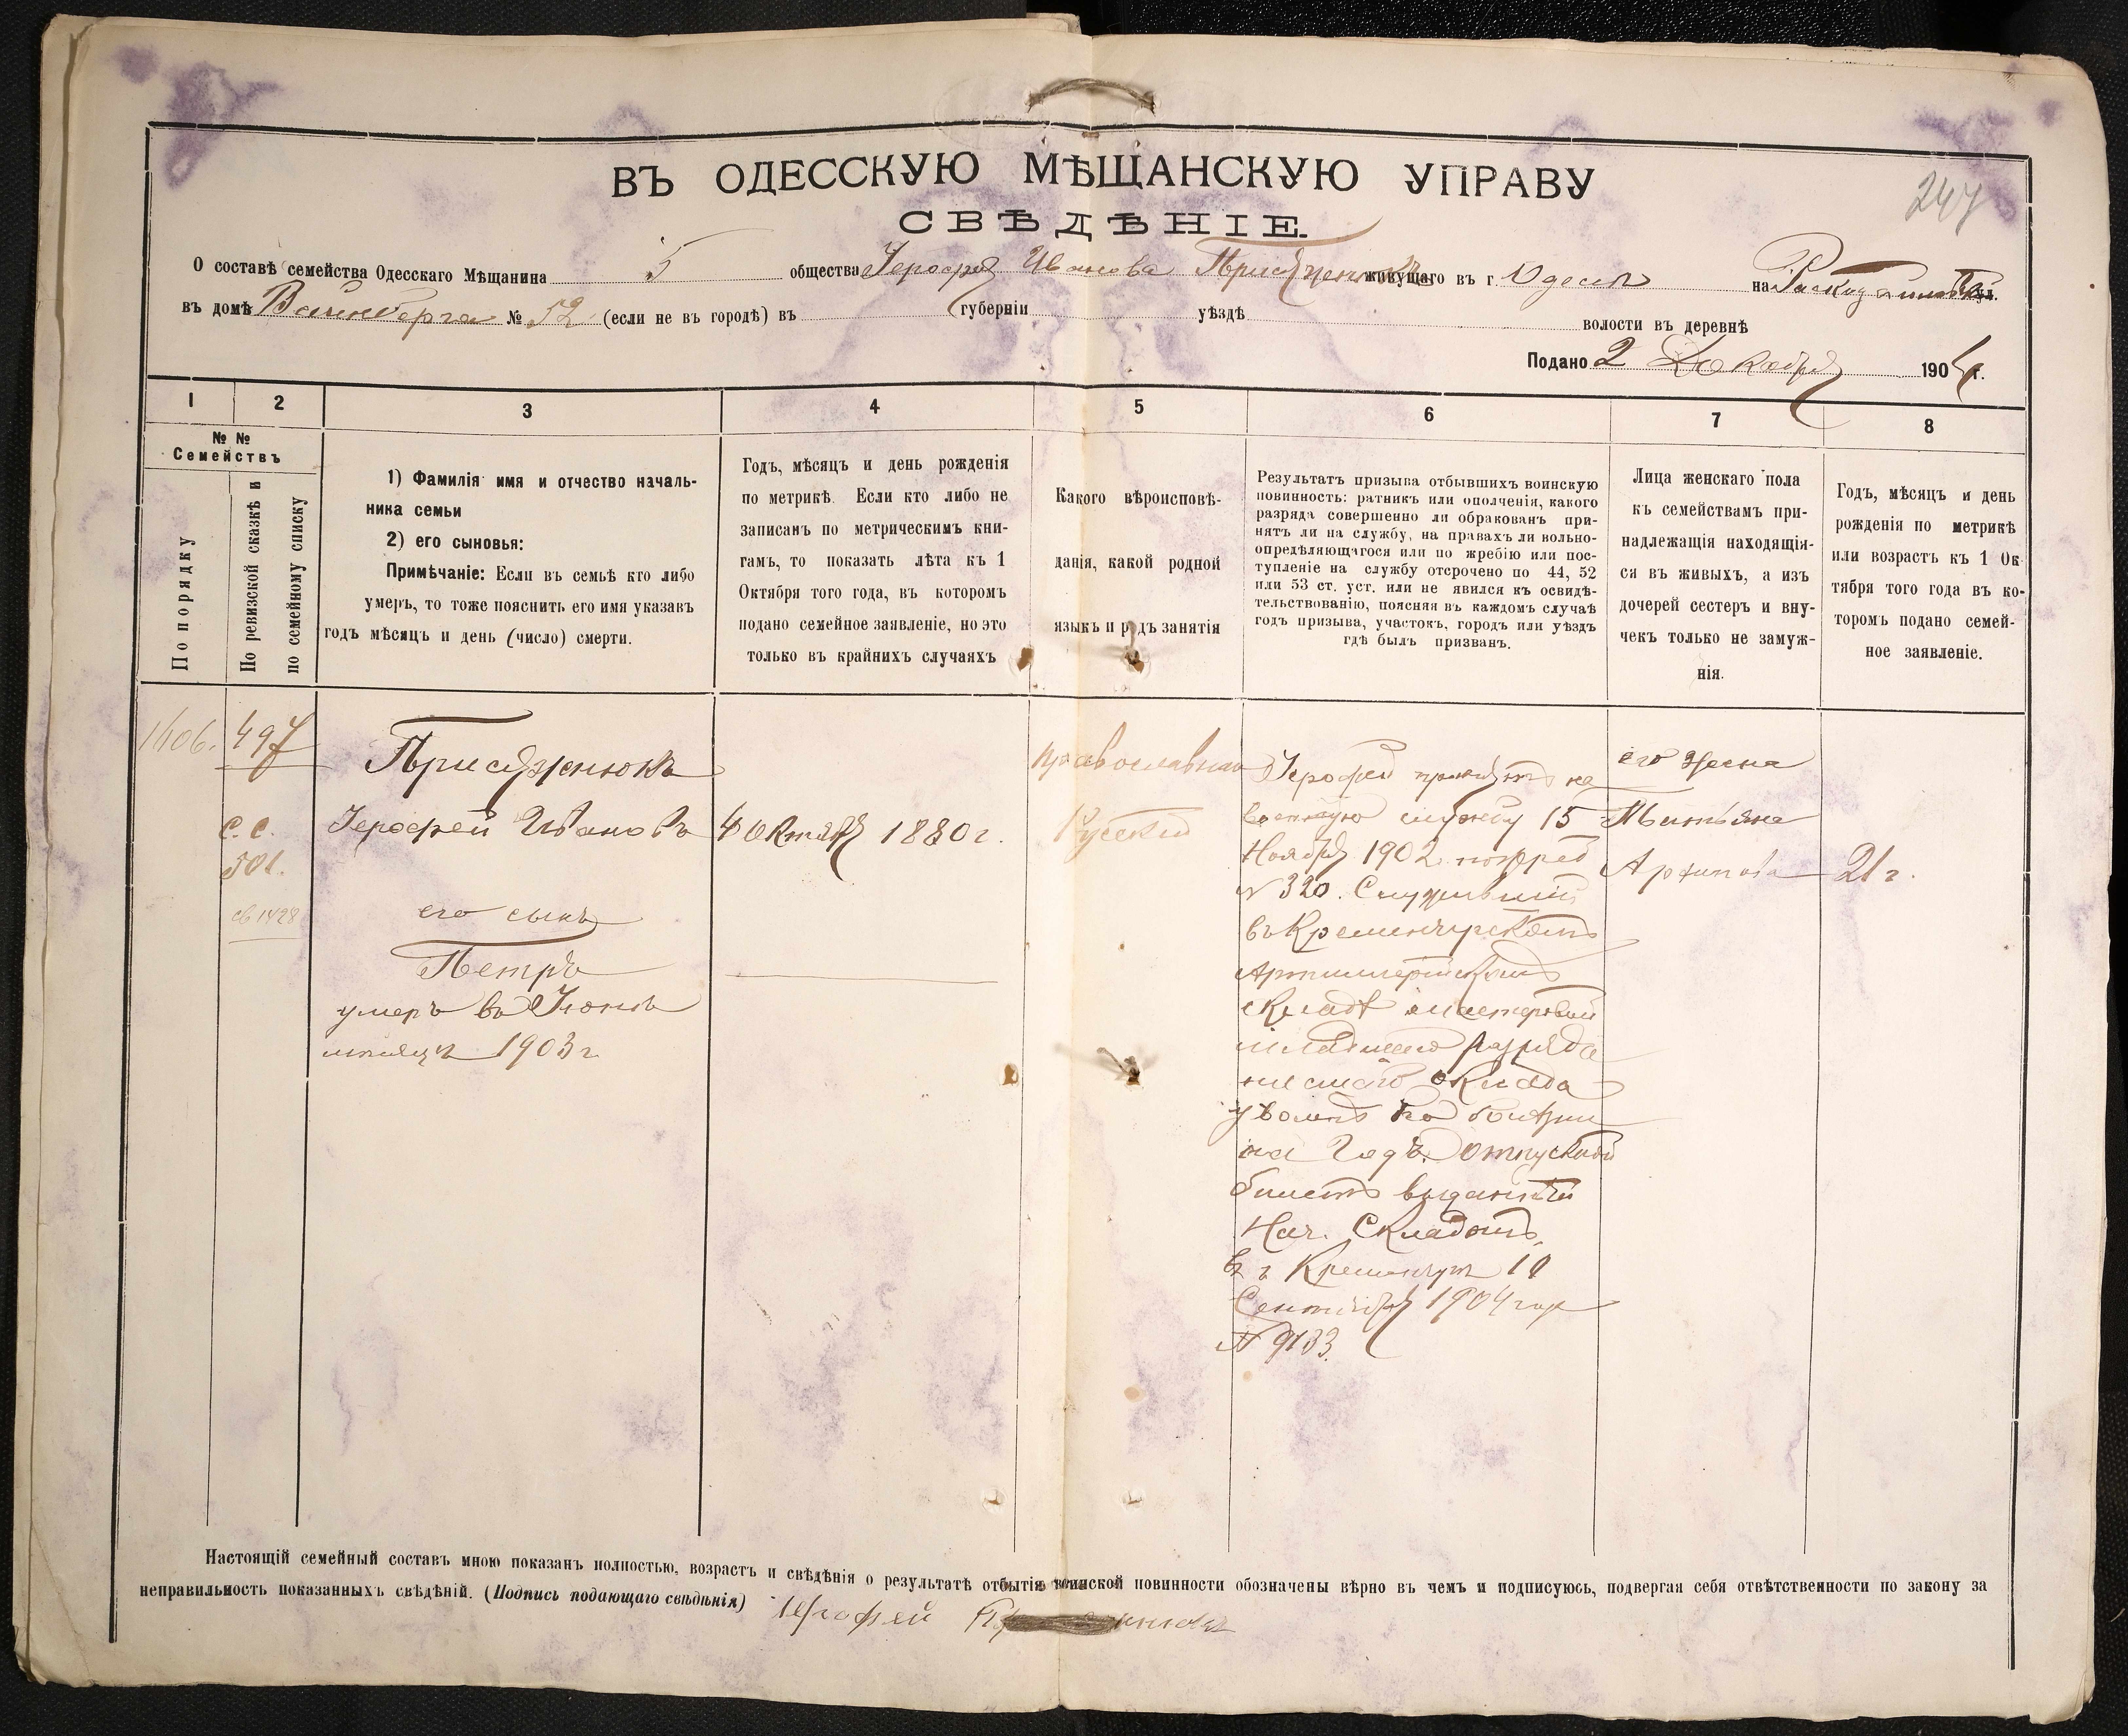 247
ВЪ ОДЕССКУЮ МѢЩАНСКУЮ УПРАВУ
СВѢДѢНІЕ
О составѣ семейства Одесскаго Мѣщанина 5 общества Іерофея Иванова Присяженюка живущаго въ г. Одессѣ на ул.
въ домѣ Вайнберга № 52 (если не въ городѣ) въ губерніи уѣздѣ волости въ деревнѣ
Подано 2 Декабря 1904 г.
1 2 3 4 5 6 7 8
№ №
Семействъ
По порядку
По ревизской сказкѣ и
по семейному списку
1) Фамилія имя и отчество началь-
ника семьи
2) его сыновья:
Примѣчаніе: Если въ семьѣ кто либо
умеръ, то тоже пояснить его имя указавъ
годъ мѣсяцъ и день (число) смерти.
Годъ, мѣсяцъ и день рожденія
по метрикѣ. Если кто либо не
записанъ по метрическимъ кни-
гамъ, то показать лѣта къ 1
Октября того года, въ которомъ
подано семейное заявленіе, но это
только въ крайнихъ случаяхъ
Какого вѣроисповѣ-
данія, какой родной
языкъ и родъ занятія
Результатъ призыва отбывшихъ воинскую
повинность: ратникъ или ополченія, какого
разряда совершенно ли обракованъ при-
нятъ ли на службу, на правахъ ли вольно-
опредѣляющагося или по жребію или пос-
тупленіе на службу отсрочено по 44, 52
или 53 ст. уст. или не явился къ освидѣ-
тельствованію, поясняя въ каждомъ случаѣ
годъ призыва, участокъ, городъ или уѣздъ
гдѣ былъ призванъ.
Лица женскаго пола
къ семействамъ при-
надлежащія находящія-
ся въ живыхъ, а изъ
дочерей сестеръ и вну-
чекъ только не замуж-
нія.
Годъ, мѣсяцъ и день
рожденія по метрикѣ
или возрастъ къ 1 Ок-
тября того года въ ко-
торомъ подано семей-
ное заявленіе.
1406.
497
с. с.
501.
св 1428
Присяженюкъ
Іерофей Ивановъ
его сынъ
Петръ
умеръ въ Іюнѣ
мѣсяцѣ 1903 г
4 Октября 1880 г.
православнаго
Русскій
Іерофей принятъ на
военную службу 15
Ноября 1902 по жреб
№ 320. Служившій
въ Кременчугскомъ
Артиллерійскомъ
складѣ мастеровой
младшаго разряда
оклада
уволенъ по болѣзни
на Годъ. Отпускной
билетъ выданный
Нач. Складомъ,
въ г Кременчугѣ 10
Сентября 1904 года
№ 9133.
его жена
Татьяна
Архипова
21 г.
Настоящій семейный составъ мною показанъ полностью, возрастъ и свѣдѣнія о результатѣ отбытія воинской повинности обозначены вѣрно въ чемъ и подписуюсь, подвергая себя отвѣтственности по закону за
неправильность показанныхъ свѣдѣній. (Подпись подающаго свѣдѣнія) Ерофей